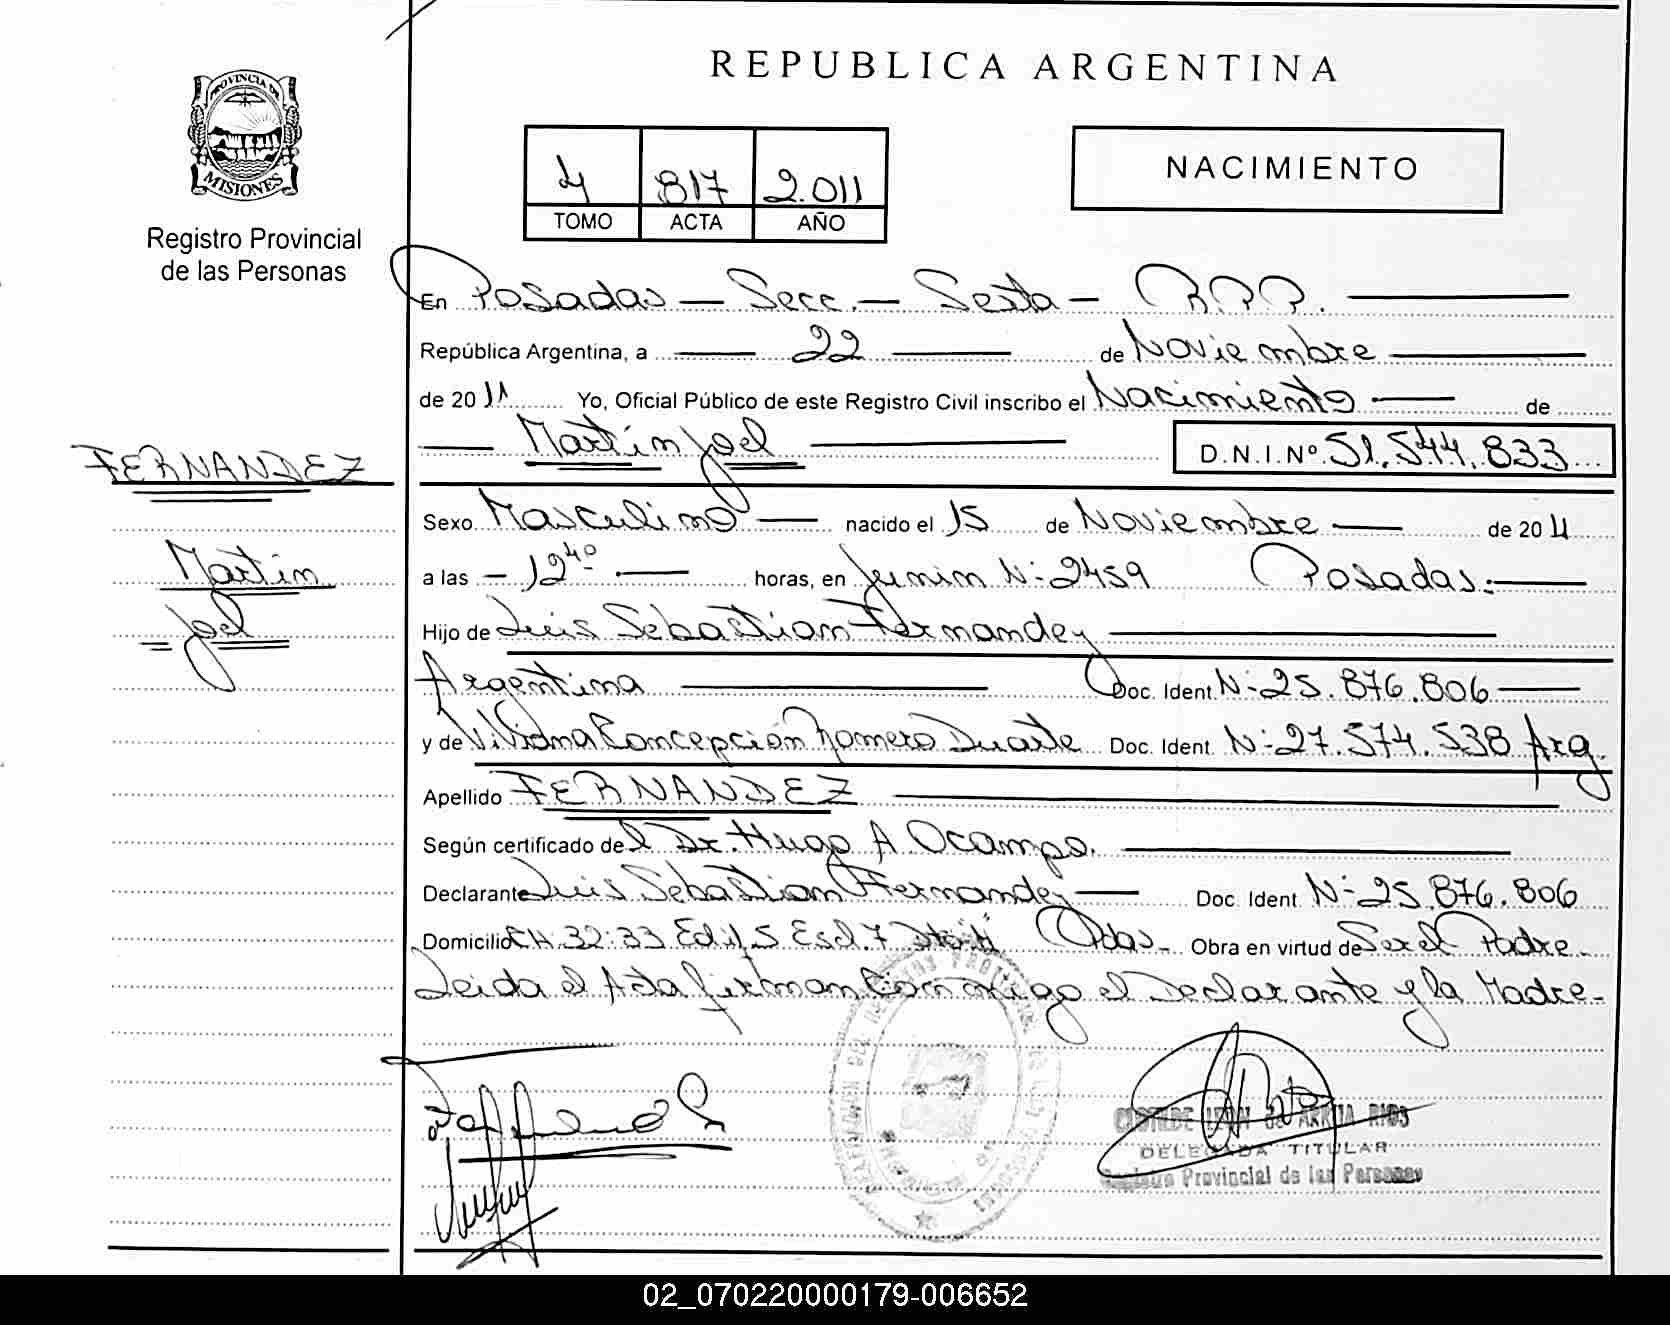 REPUBLICA ARGENTINA
PROVINCIA DE
MISIONES
Registro Provincial
de las Personas
4 817 2.011
TOMO ACTA AÑO
NACIMIENTO
En Posadas — Secc. — Sexta — R.P.P.
República Argentina, a 22 de Noviembre
de 2011 Yo, Oficial Público de este Registro Civil inscribo el Nacimiento de
Martin Joel D.N.I.Nº 51.544.833
FERNANDEZ
Martin
Joel
Sexo Masculino nacido el 15 de Noviembre de 2011
a las 12⁴⁰ horas, en Junin Nº 2459 Posadas.
Hijo de Luis Sebastian Fernandez
Argentina Doc. Ident. Nº 25.876.806
y de Viviana Concepción Romero Duarte Doc. Ident. Nº 27.574.538 Arg.
Apellido FERNANDEZ
Según certificado del Dr. Hugo A Ocampo.
Declarante Luis Sebastian Fernandez Doc. Ident. Nº 25.876.806
Domicilio CH. 32-33 Edif. 5 Esd. 7 Dto. "A" Pdas. Obra en virtud de Ser el Padre.
Leida el Acta firman Conmigo el Declarante y la Madre
DELEGADA TITULAR
Registro Provincial de las Personas
02_070220000179-006652